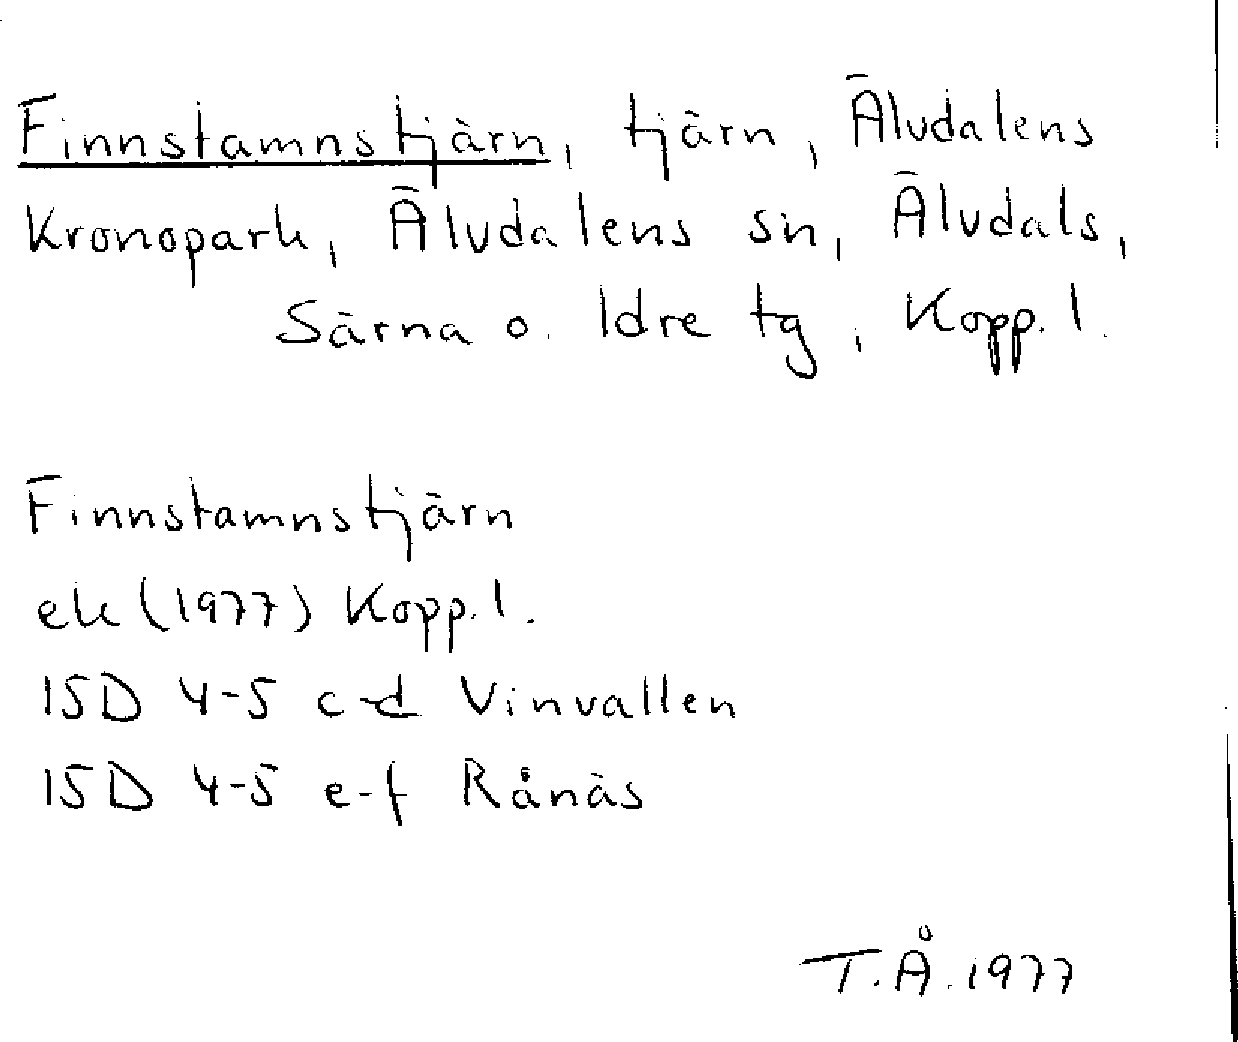 Finnstamnstjärn, tjärn, Älvdalens
Kronopark, Älvdalens sn, Älvdals,
Särna o. Idre tg, Kopp. l.
Finnstamnstjärn
ek (1977) Kopp. l.
15D 4-5 c-d Vinvallen
15D 4-5 e-f Rånäs
T.Å. 1977